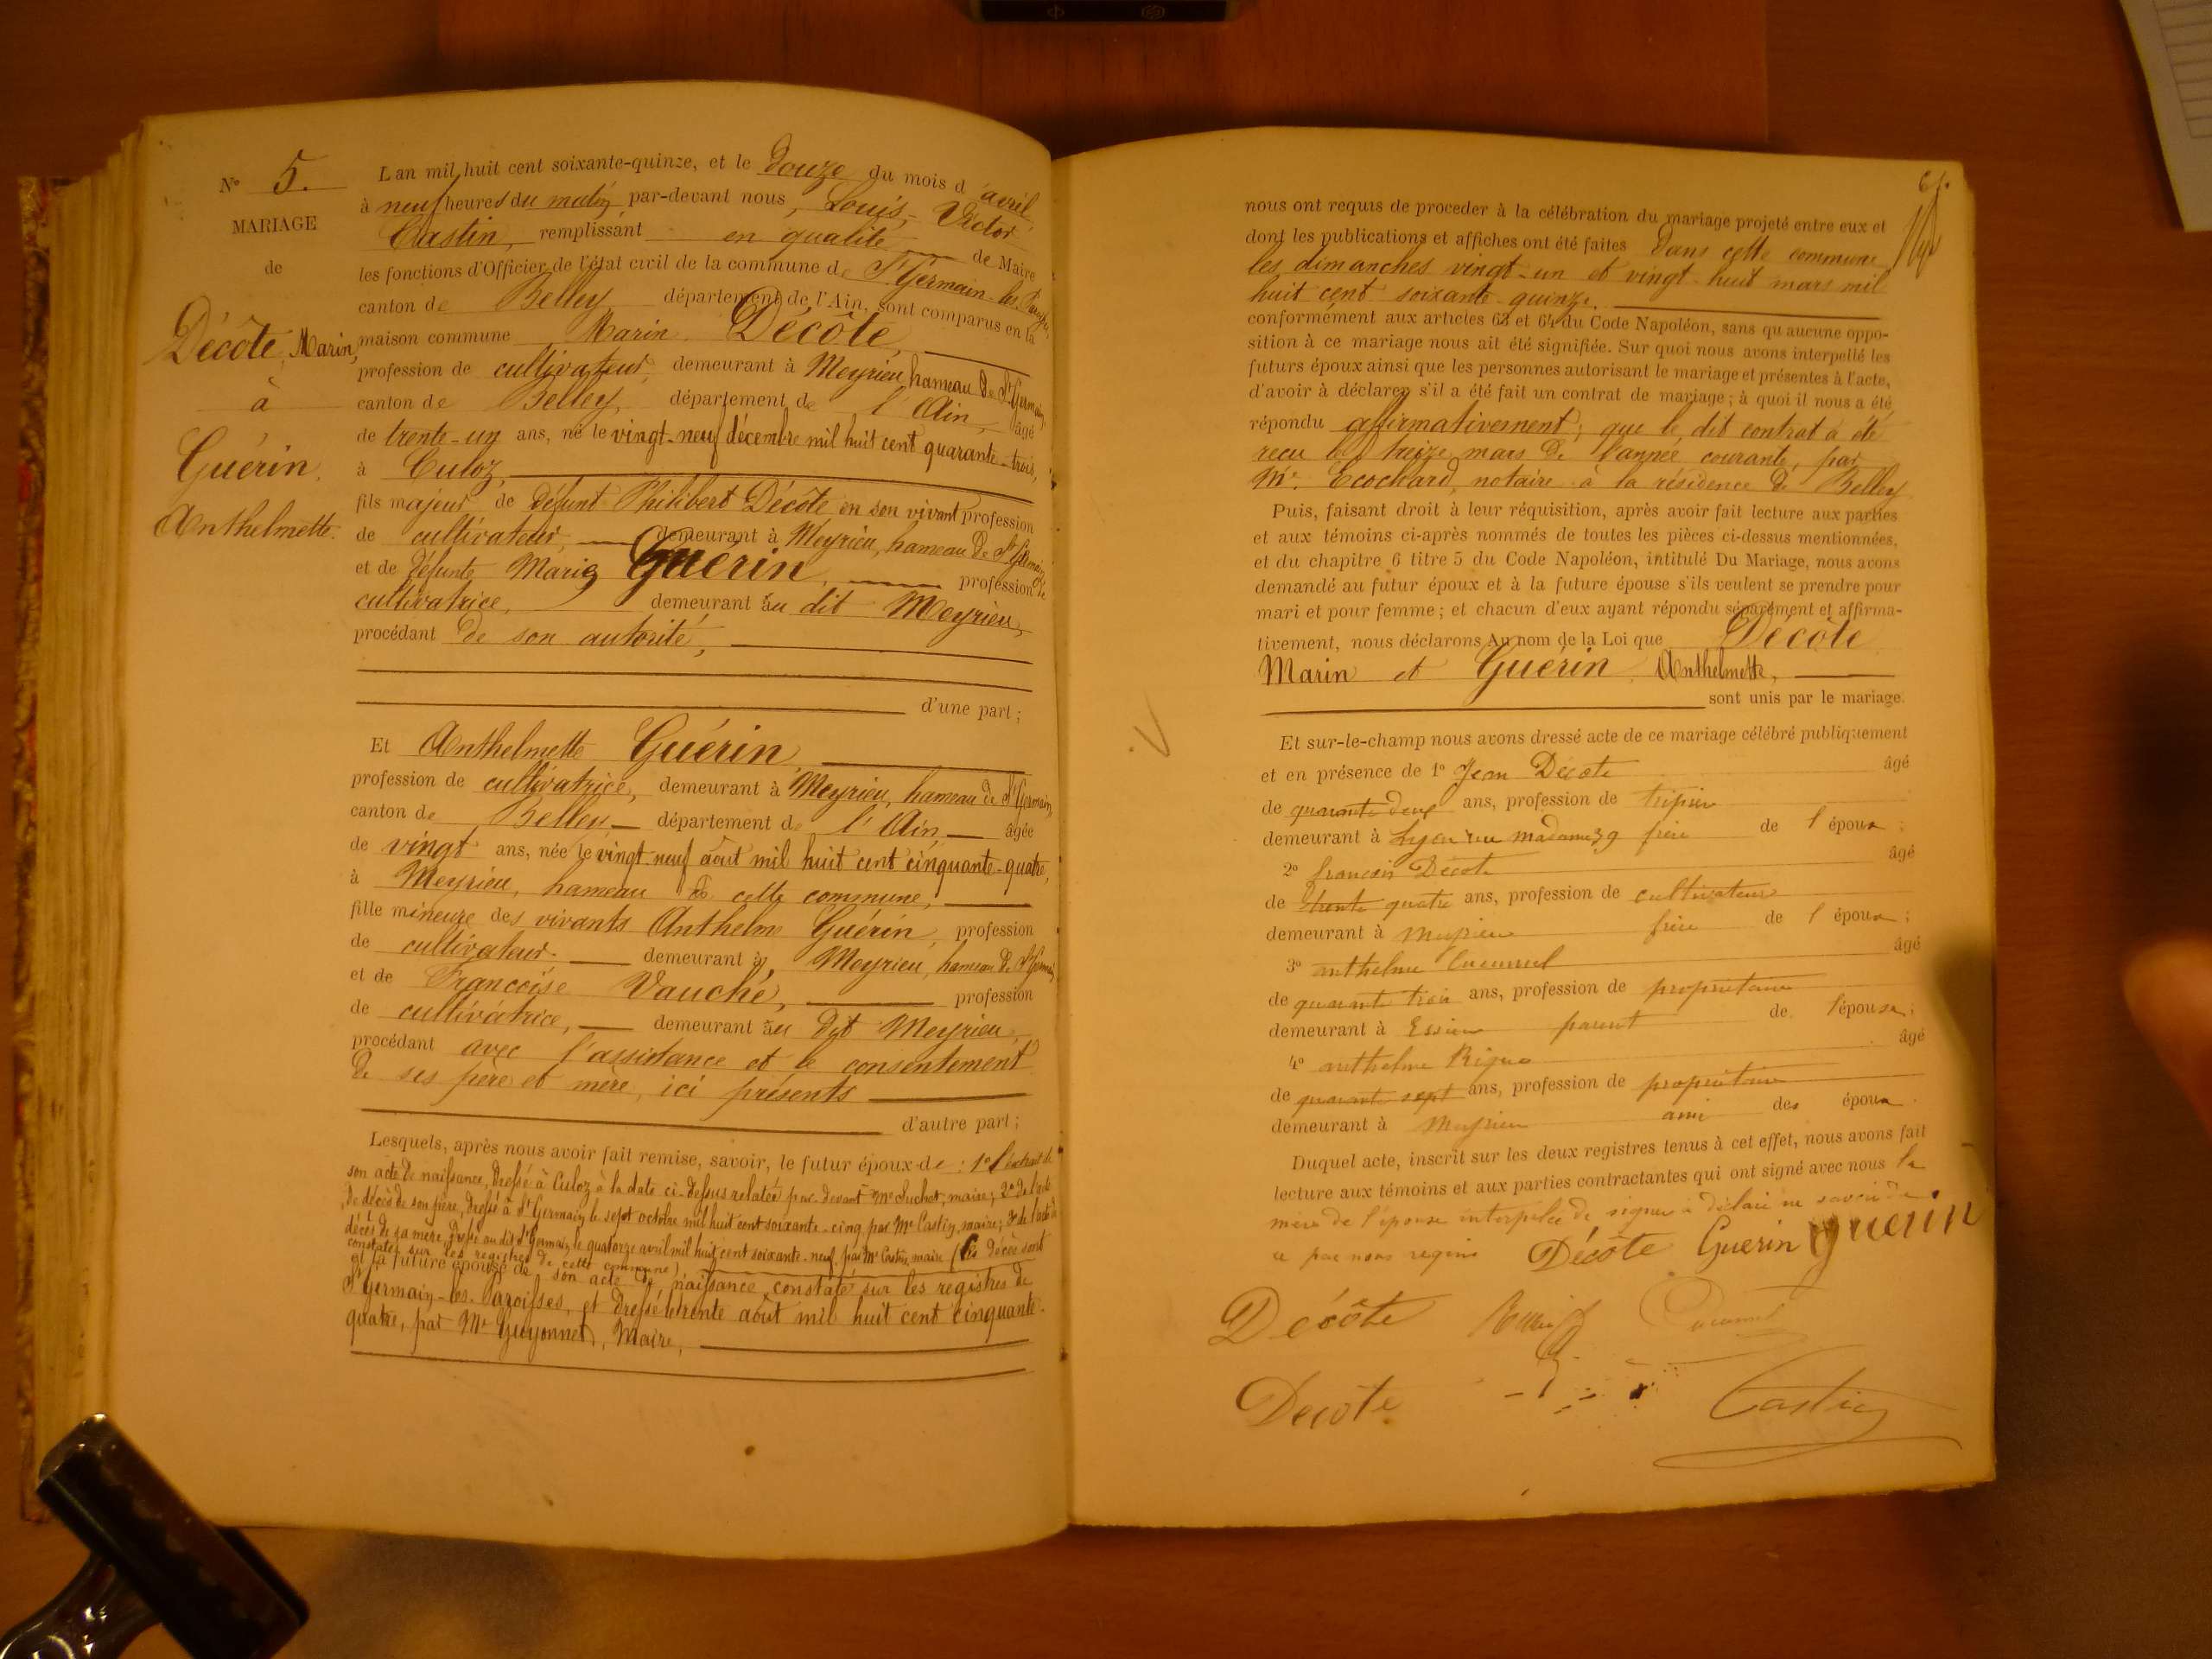 N° 5.
MARIAGE
de
Décôte, Marin,
à
Guérin,
Anthelmette.
L'an mil huit cent soixante-quinze, et le douze du mois d'avril,
à neuf heures du matin par-devant nous, Louis, Victor
Castin, remplissant en qualité de Maire
les fonctions d'Officier de l'état civil de la commune de St Germain-les-Paroisses
canton de Belley département de l'Ain, sont comparus en la
maison commune Marin Décôte,
profession de cultivateur, demeurant à Meyrieu, hameau de St Germain,
canton de Belley, département de l'Ain, âgé
de trente-un ans, né le vingt-neuf décembre mil huit cent quarante-trois,
à Culoz,
fils majeur de défunt Philibert Décôte en son vivant profession
de cultivateur, demeurant à Meyrieu, hameau de St Germain
et de défunte Marie Guérin, profession de
cultivatrice, demeurant au dit Meyrieu,
procédant de son autorité,
d'une part ;
Et Anthelmette Guérin,
profession de cultivatrice, demeurant à Meyrieu, hameau de St Germain,
canton de Belley, département de l'Ain, âgée
de vingt ans, née le vingt-neuf août mil huit cent cinquante-quatre,
à Meyrieu, hameau de cette commune,
fille mineure des vivants Anthelme Guérin, profession
de cultivateur demeurant à Meyrieu, hameau de St Germain,
et de Françoise Vauché, profession
de cultivatrice, demeurant au dit Meyrieu,
procédant avec l'assistance et le consentement
de ses père et mère, ici présents
d'autre part ;
Lesquels, après nous avoir fait remise, savoir, le futur époux de : 1° l'extrait de
son acte de naissance, dressé à Culoz à la date ci-dessus relatée par-devant Mr Suchet, maire; 2° de l'acte
de décès de son père, dressé à St Germain le sept octobre mil huit cent soixante-cinq par Mr Castin, maire; 3° de l'acte de
décès de sa mère, dressé au dit St Germain, le quatorze avril mil huit cent soixante-neuf, par Mr Castin, maire (les décès sont
constatés sur les registres de cette commune)
et la future épouse de son acte de naissance constaté sur les registres de
St Germain-les-Paroisses, et dressé le trente août mil huit cent cinquante-
quatre, par Mr Guyonnet, Maire,
nous ont requis de procéder à la célébration du mariage projeté entre eux et
dont les publications et affiches ont été faites dans cette commune
les dimanches vingt-un et vingt-huit mars mil
huit cent soixante-quinze.
conformément aux articles 63 et 64 du Code Napoléon, sans qu'aucune oppo-
sition à ce mariage nous ait été signifiée. Sur quoi nous avons interpellé les
futurs époux ainsi que les personnes autorisant le mariage et présentes à l'acte,
d'avoir à déclarer s'il a été fait un contrat de mariage ; à quoi il nous a été
répondu affirmativement; que le dit contrat a été
reçu le treize mars de l'année courante, par
Me Ecochard, notaire à la résidence de Belley
Puis, faisant droit à leur réquisition, après avoir fait lecture aux parties
et aux témoins ci-après nommés de toutes les pièces ci-dessus mentionnées,
et du chapitre 6 titre 5 du Code Napoléon, intitulé Du Mariage, nous avons
demandé au futur époux et à la future épouse s'ils veulent se prendre pour
mari et pour femme ; et chacun d'eux ayant répondu séparément et affirma-
tivement, nous déclarons Au nom de la Loi que Décôte
Marin et Guérin Anthelmette,
sont unis par le mariage.
Et sur-le-champ nous avons dressé acte de ce mariage célébré publiquement
et en présence de 1° Jean Décote âgé
de quarante deux ans, profession de tripier
demeurant à Lyon rue madame 39 frère de l'époux ;
2° francois Décote âgé
de trente quatre ans, profession de cultivateur
demeurant à meyrieu frère de l'époux ;
3° anthelme âgé
de quarante trois ans, profession de propriétaire
demeurant à parent de l'épouse ;
4° anthelme âgé
de quarante sept ans, profession de propriétaire
demeurant à Meyrieu ami des époux
Duquel acte, inscrit sur les deux registres tenus à cet effet, nous avons fait
lecture aux témoins et aux parties contractantes qui ont signé avec nous la
mère de l'épouse interpelée de signer a déclaré ne savoir de
ce par nous requis Décôte Guerin guerin
Décôte
Decôte Castin